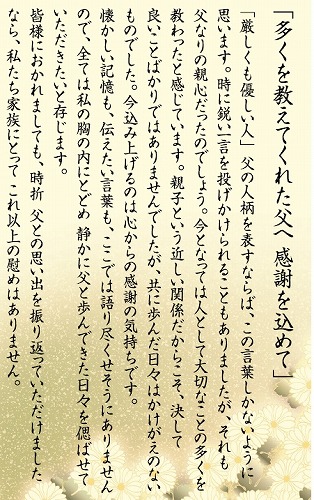 「多くを教えてくれた父へ 感謝を込めて」
「厳しくも優しい人」 父の人柄を表すならば、この言葉しかないように
思います。時に鋭い一言を投げかけられることもありましたが、それも
父なりの親心だったのでしょう。今となっては人として大切なことの多くを
教わったと感じています。親子という近しい関係だからこそ、決して
良いことばかりではありませんでしたが、共に歩んだ日々はかけがえのない
ものでした。今込み上げるのは心からの感謝の気持ちです。
懐かしい記憶も、伝えたい言葉も、ここでは語り尽くせそうにありません
ので、全ては私の胸の内にとどめ 静かに父と歩んできた日々を偲ばせて
いただきたいと存じます。
皆様におかれましても、時折 父との思い出を振り返っていただけました
なら、私たち家族にとって これ以上の慰めはありません。